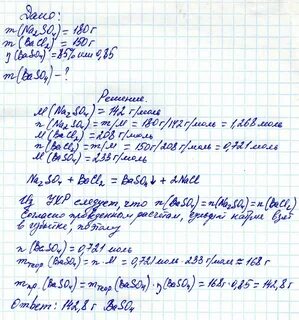 Дано:
m(Na₂SO₄) = 180 г
m(BaCl₂) = 150 г
η(BaSO₄) = 85% или 0,85
m(BaSO₄) - ?
Решение.
M(Na₂SO₄) = 142 г/моль
n(Na₂SO₄) = m/M = 180г/142 г/моль = 1,268 моль
M(BaCl₂) = 208 г/моль
n(BaCl₂) = m/M = 150г/208 г/моль = 0,721 моль
M(BaSO₄) = 233 г/моль
Na₂SO₄ + BaCl₂ = BaSO₄↓ + 2NaCl
Из УХР следует, что n(BaSO₄) = n(Na₂SO₄) = n(BaCl₂)
Согласно проведенным расчетам, натрия взят
в избытке, поэтому
n(BaSO₄) = 0,721 моль
m теор (BaSO₄) = n·M = 0,721 моль·233 г/моль ≈ 168 г
m пр. (BaSO₄) = m теор (BaSO₄)·η(BaSO₄) = 168г·0,85 = 142,8 г
Ответ: 142,8 г BaSO₄